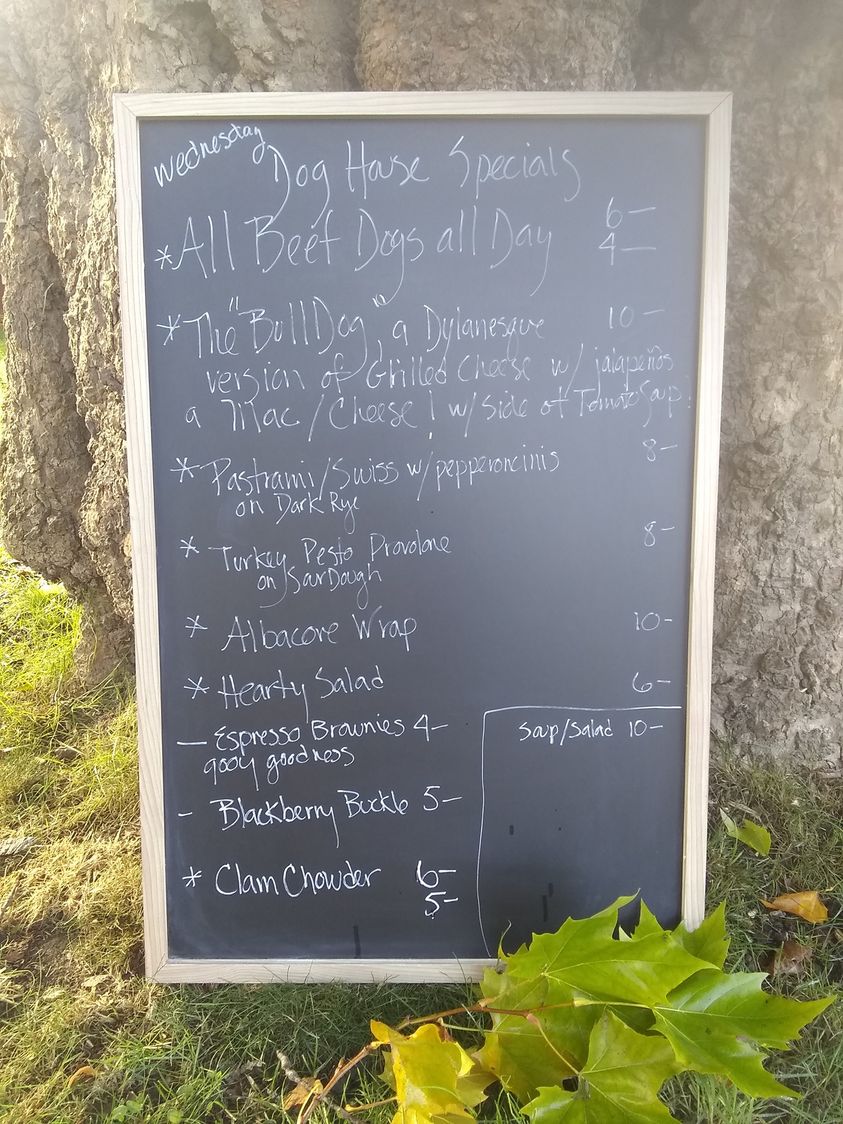 Wednesday
Dog House Specials
6—
*All Beef Dogs all Day 4—
*The "BullDog", a Dylanesque 10—
version of Grilled Cheese w/ jalapeños
a Mac/Cheese! w/ Side of Tomato Soup!
* Pastrami/Swiss w/pepperoncinis 8—
on Dark Rye
* Turkey Pesto Provolone 8—
on SourDough
* Albacore Wrap 10-
* Hearty Salad 6—
— Espresso Brownies 4—
gooy goodness
Soup/Salad 10—
- Blackberry Buckle 5—
* Clam Chowder 6—
5-